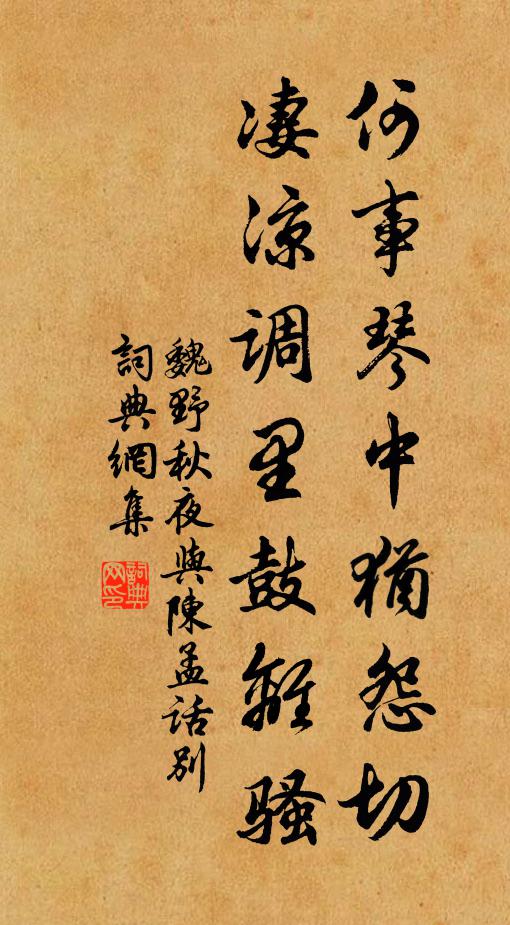 何事琴中猶怨切
凄涼调里鼓離騷
魏野秋夜與陳孟話別
詞典網集
詞典网印